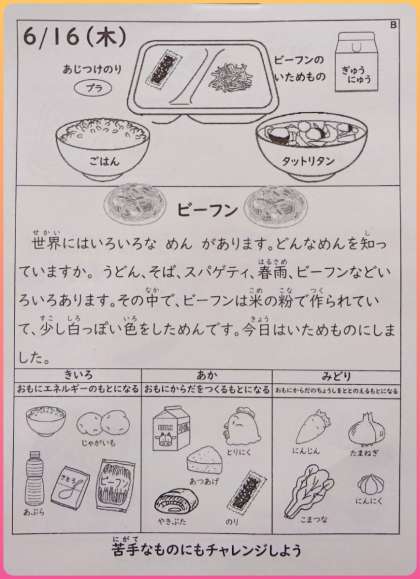 B
6/16(木)
あじつけのり
プラ
ビーフンの
いためもの
ぎゅう
にゅう
ごはん
タットリタン
ビーフン
せかい し
世界にはいろいろな めん があります。どんなめんを知っ
はるさめ
ていますか。うどん、そば、スパゲティ、春雨、ビーフンなどい
なか こめ こな つく
ろいろあります。その中で、ビーフンは米の粉で作られてい
すこ しろ いろ きょう
て、少し白っぽい色をしためんです。今日はいためものにしま
した。
きいろ
おもにエネルギーのもとになる
じゃがいも
あぶら
さとう
ビーフン
あか
おもにからだをつくるもとになる
とりにく
あつあげ
やきぶた
のり
みどり
おもにからだのちょうしをととのえるもとになる
にんじん
たまねぎ
こまつな
にんにく
にがて
苦手なものにもチャレンジしよう